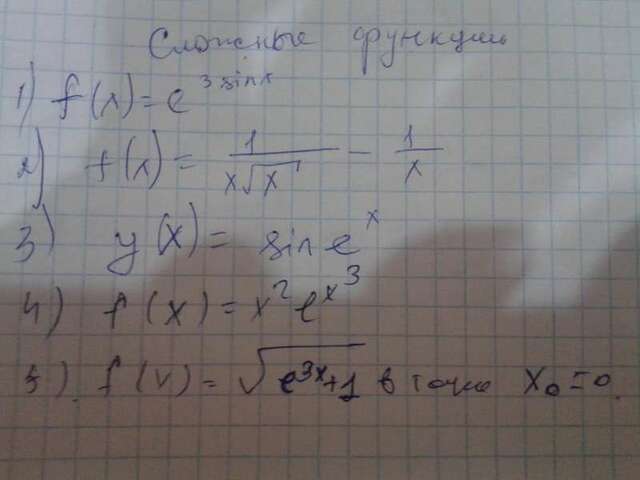 Сложные функции
1) f(x) = e^{3 sin x}
2) f(x) = \frac{1}{x\sqrt{x}} - \frac{1}{x}
3) y(x) = sin e^x
4) f(x) = x^2 e^{x^3}
5) f(x) = \sqrt{e^{3x}+1} в точке x_0 = 0.